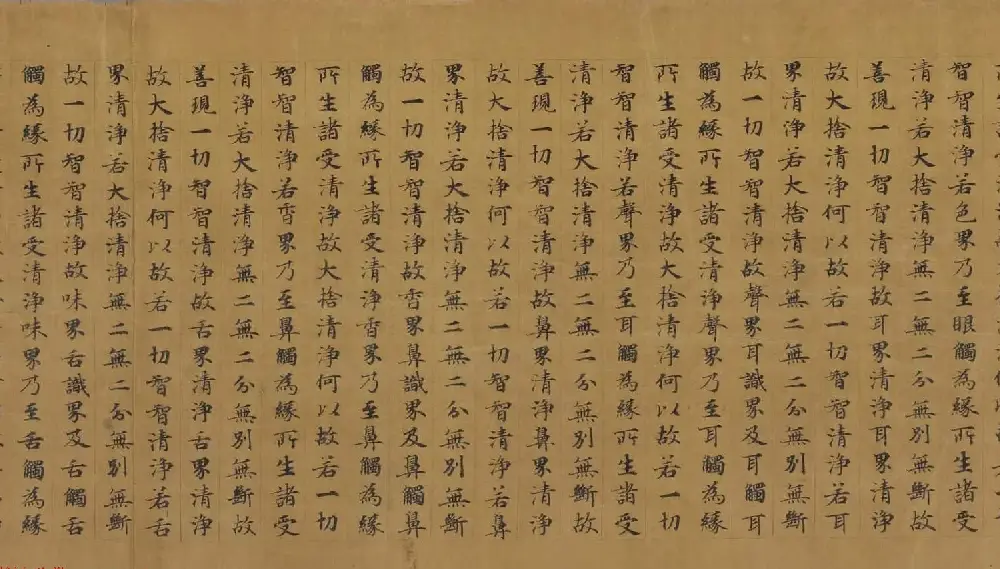 智智清淨若色界乃至眼觸為緣所生諸受
清淨若大捨清淨無二無二分無別無斷故
善現一切智智清淨故耳界清淨耳界清淨
故大捨清淨何以故若一切智智清淨若耳
界清淨若大捨清淨無二無二分無別無斷
故一切智智清淨故聲界耳識界及耳觸耳
觸為緣所生諸受清淨聲界乃至耳觸為緣
所生諸受清淨故大捨清淨何以故若一切
智智清淨若聲界乃至耳觸為緣所生諸受
清淨若大捨清淨無二無二分無別無斷故
善現一切智智清淨故鼻界清淨鼻界清淨
故大捨清淨何以故若一切智智清淨若鼻
界清淨若大捨清淨無二無二分無別無斷
故一切智智清淨故香界鼻識界及鼻觸鼻
觸為緣所生諸受清淨香界乃至鼻觸為緣
所生諸受清淨故大捨清淨何以故若一切
智智清淨若香界乃至鼻觸為緣所生諸受
清淨若大捨清淨無二無二分無別無斷故
善現一切智智清淨故舌界清淨舌界清淨
故大捨清淨何以故若一切智智清淨若舌
界清淨若大捨清淨無二無二分無別無斷
故一切智智清淨故味界舌識界及舌觸舌
觸為緣所生諸受清淨味界乃至舌觸為緣